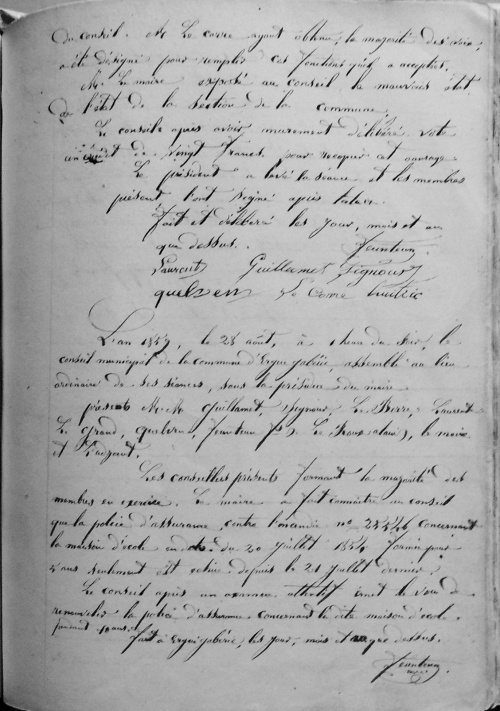 du conseil. Mr Le Corre ayant obtenu la majorité des voix,
a été désigné pour remplir ces fonctions qu'il a acceptées.
Mr Le maire expose au conseil le mauvais état
de l'état de la section de la commune
Le conseil après avoir murement délibéré vote
un crédit de vingt francs pour recopier cet ouvrage
Le président a levé la séance et les membres
présents ont signé après lecture
Fait et délibéré les jour, mois et an
que dessus.
Laurent Guillamet Signour
Le Corre
L'an 1859, le 28 août, à 1 heure du soir, le
conseil municipal de la commune d'Ergué gabéric, assemblé au lieu
ordinaire de ses séances, sous la présidence du maire
présents M.M. Guillamet, Signour, Le Berre, Laurent
Le Grand, Le maire
et l'adjoint.
Les conseillers présents formant la majorité des
membres en exercice. Le maire a fait connaître au conseil
que la police d'assurance contre l'incendie no concernant
la maison d'école en date du 20 juillet 1854 formée pour
5 ans seulement est échue depuis le 21 juillet dernier.
Le conseil après un examen attentif émet le vœu de
renouveler la police d'assurance concernant la dite maison d'école
pendant
fait à Ergué gabéric, les jour, mois et an que dessus.